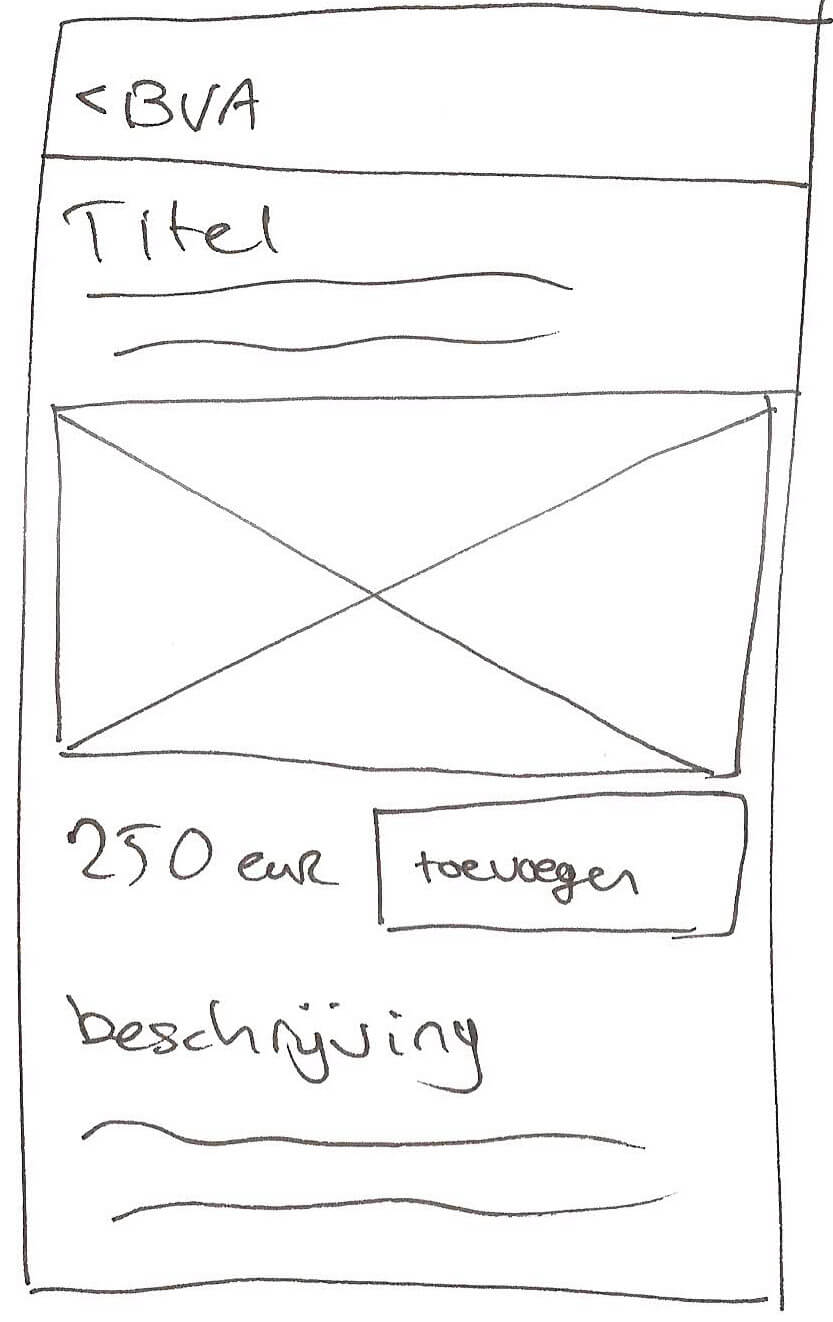 < BVA
Titel
250 eur toevoegen
beschrijving